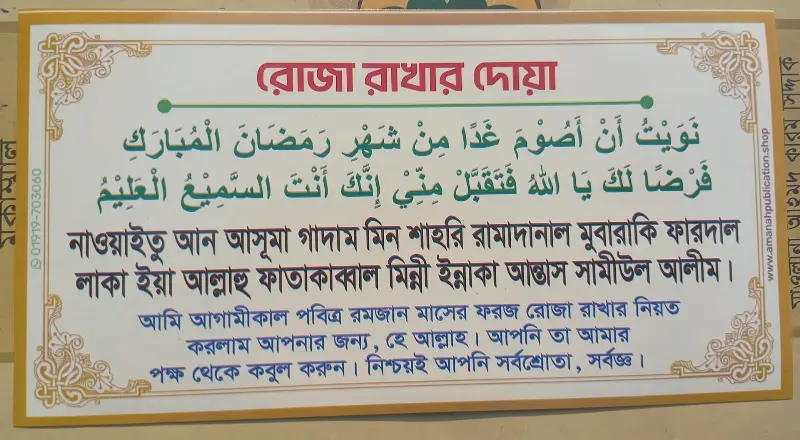 রোজা রাখার দোয়া
نَوَيْتُ أَنْ أَصُوْمَ غَدًا مِنْ شَهْرِ رَمَضَانَ الْمُبَارَكِ
فَرْضًا لَكَ يَا اللهُ فَتَقَبَّلْ مِنِّيْ إِنَّكَ أَنْتَ السَّمِيْعُ الْعَلِيْمُ
নাওয়াইতু আন আসূমা গাদাম মিন শাহরি রামাদানাল মুবারাকি ফারদাল
লাকা ইয়া আল্লাহু ফাতাকাব্বাল মিন্নী ইন্নাকা আন্তাস সামীউল আলীম।
আমি আগামীকাল পবিত্র রমজান মাসের ফরজ রোজা রাখার নিয়ত
করলাম আপনার জন্য, হে আল্লাহ। আপনি তা আমার
পক্ষ থেকে কবুল করুন। নিশ্চয়ই আপনি সর্বশ্রোতা, সর্বজ্ঞ।
01919-703060
www.amanahpublication.shop